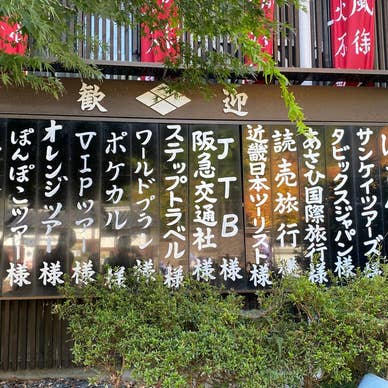 歓迎
サンケイツアーズ様
タビックスジャパン様
あさひ国際旅行様
読売旅行様
近畿日本ツーリスト様
JTB様
阪急交通社様
ステップトラベル様
ワールドプラン様
ポケカル様
VIPツアー様
オレンジツアー様
ぽんぽこツアー様